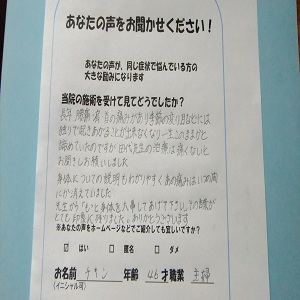 あなたの声をお聞かせください!
あなたの声が、同じ症状で悩んでいる方の
大きな励みになります
当院の施術を受けて見てどうでしたか?
長年 腰痛 肩 首の痛みがあり季節の変り目などには
独りで起きあがることが出来なくなり一生このままかと
諦めていたのですが 田代先生の治療は痛くないと
お聞きしお願いしました
身体についての説明もわかりやすくあの痛みはいつの間
にか消えていました
先生から「もっと身体を大事してあげて下さい」その言葉が
とても印象に残りました。ありがとうございます
※あなたの声をホームページなどでご紹介しても宜しいですか?
☑ はい □ 匿名 □ ダメ
お名前 チサン 年齢 46才 職業 主婦
(イニシャル可)